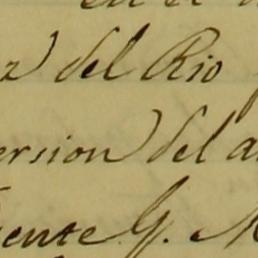 en el
z del Rio
ersion del a
ente G. M